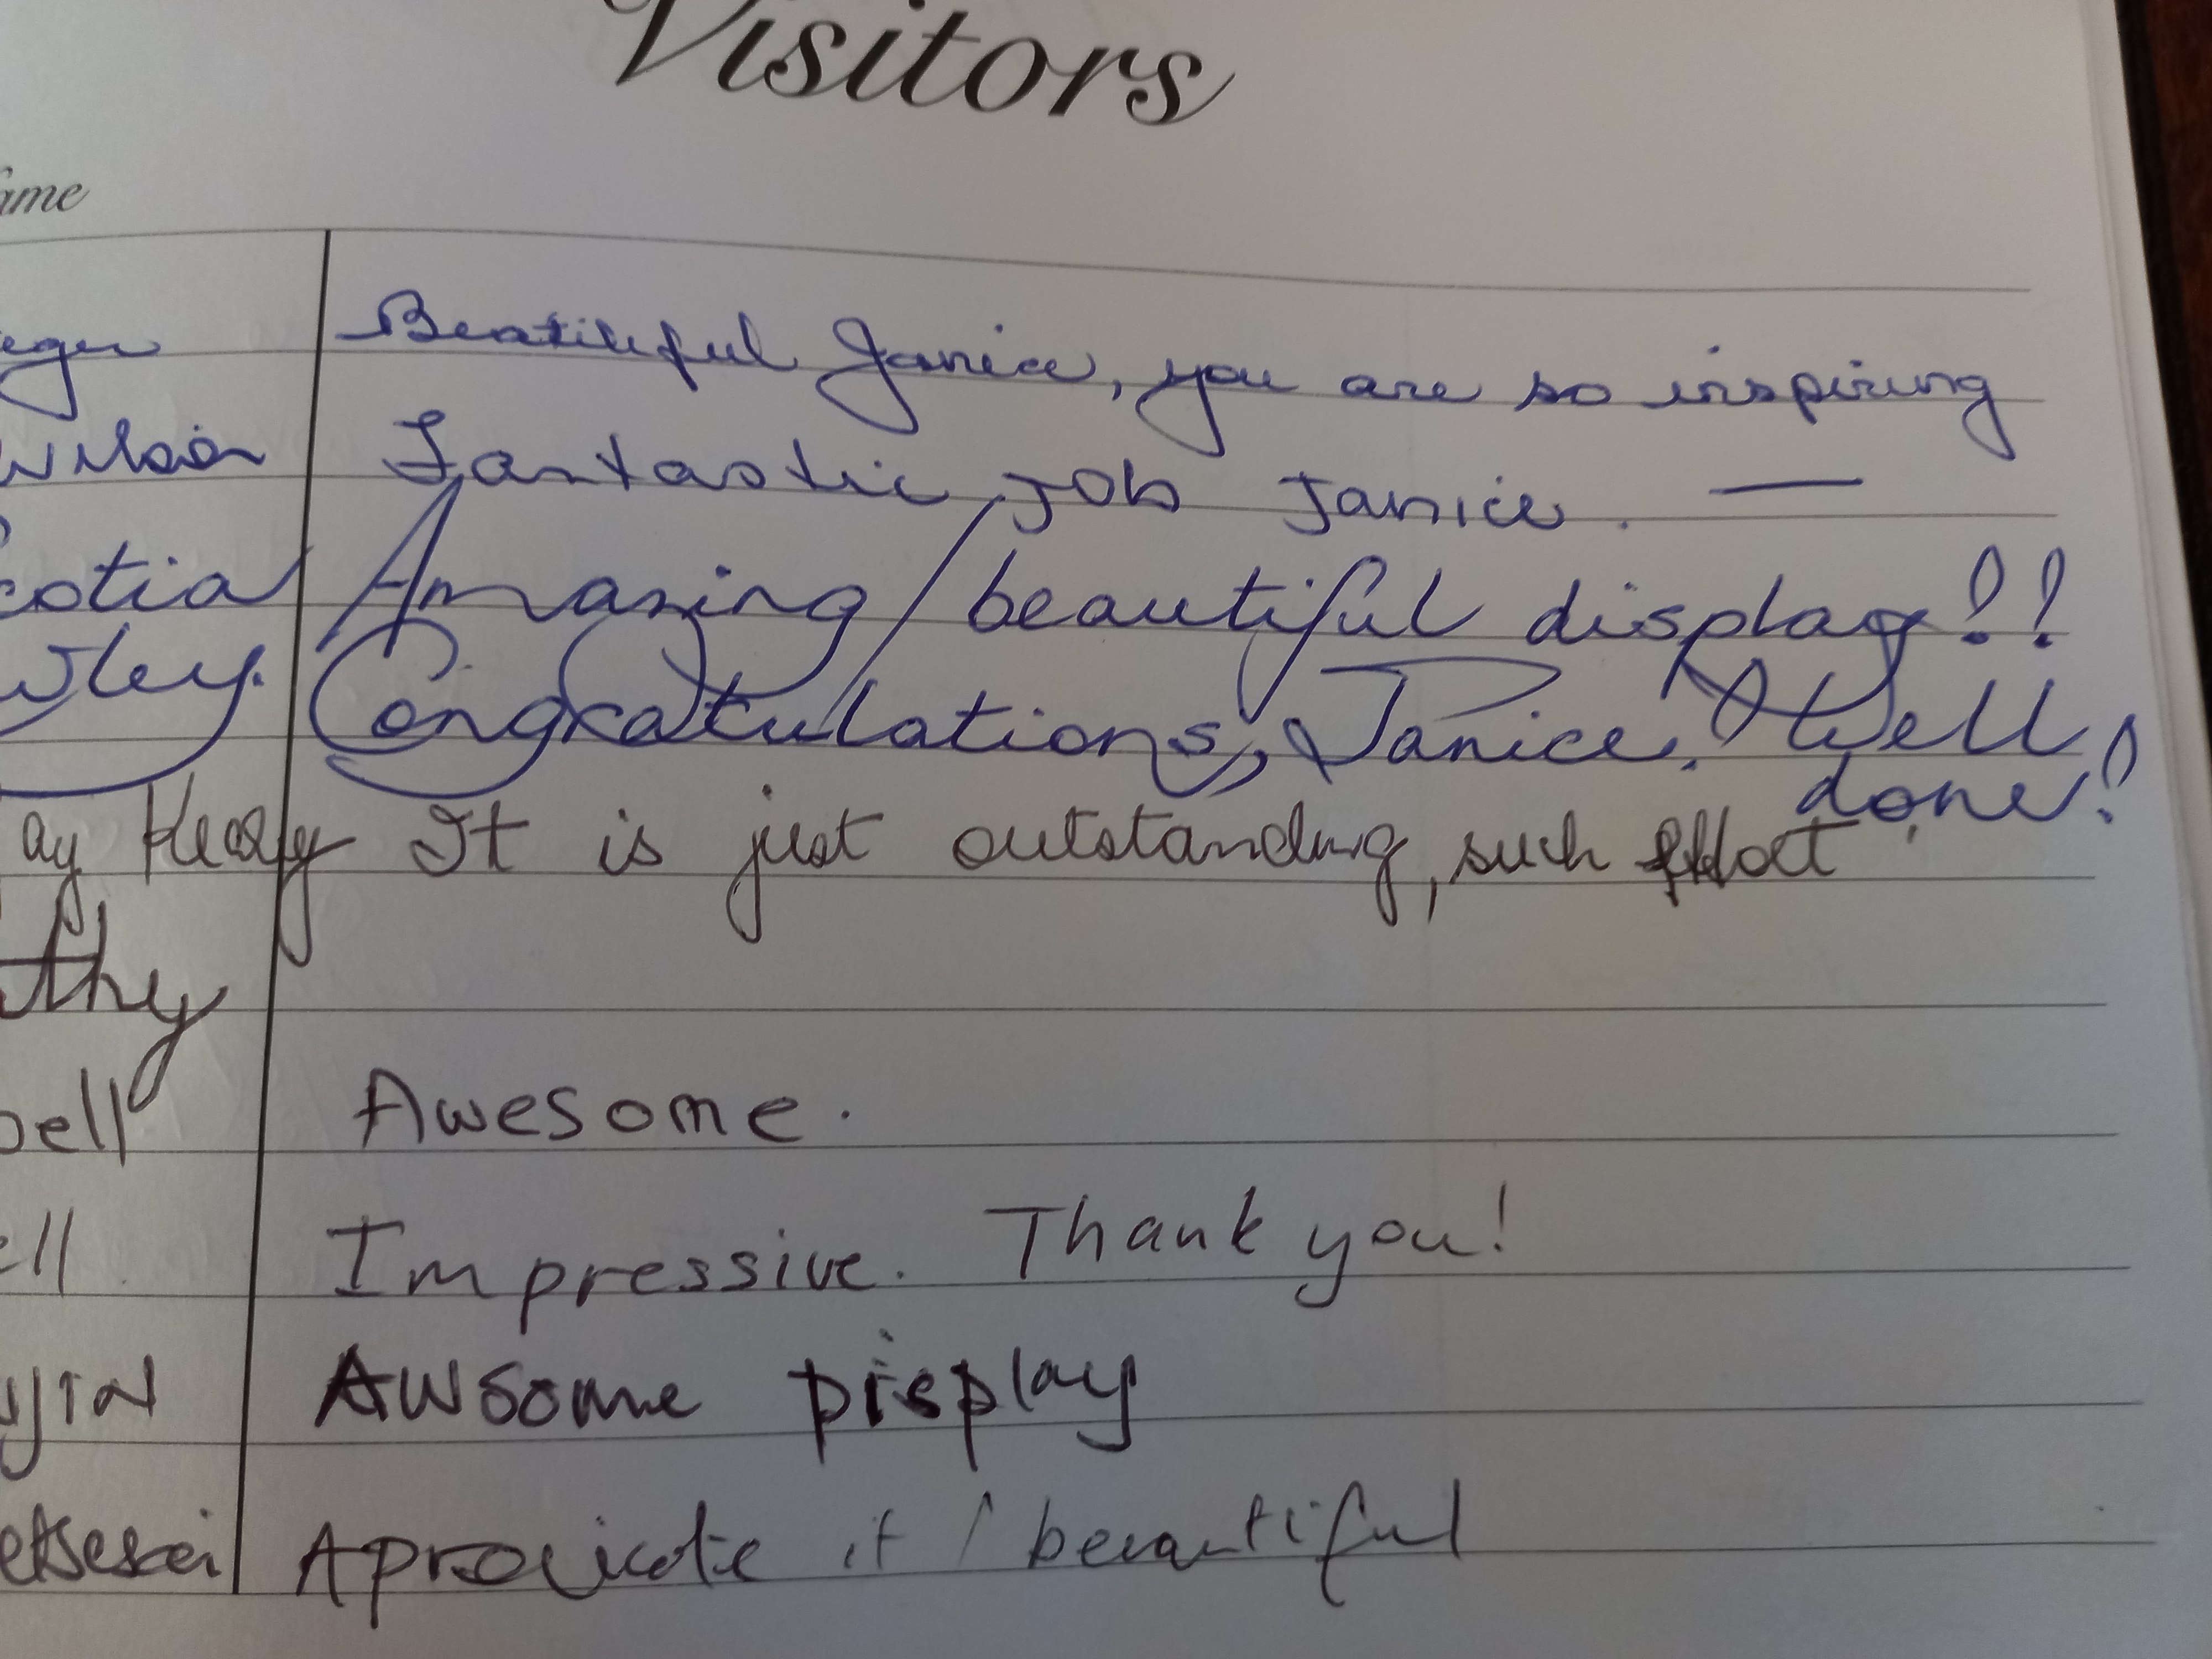 Visitors
ame
eger Beatiluful Janice, you are so inspiring
Wilson Fantastic Job Janice. —
cotia Amazing / beautiful display!!
wley. Congratulations, Janice. Well
done!
ay Healy It is just outstanding, such effort
thy
bell Awesome.
ell Impressive. Thank you!
yJIN AWSOME Display
etsesei Aproicate it / beautiful